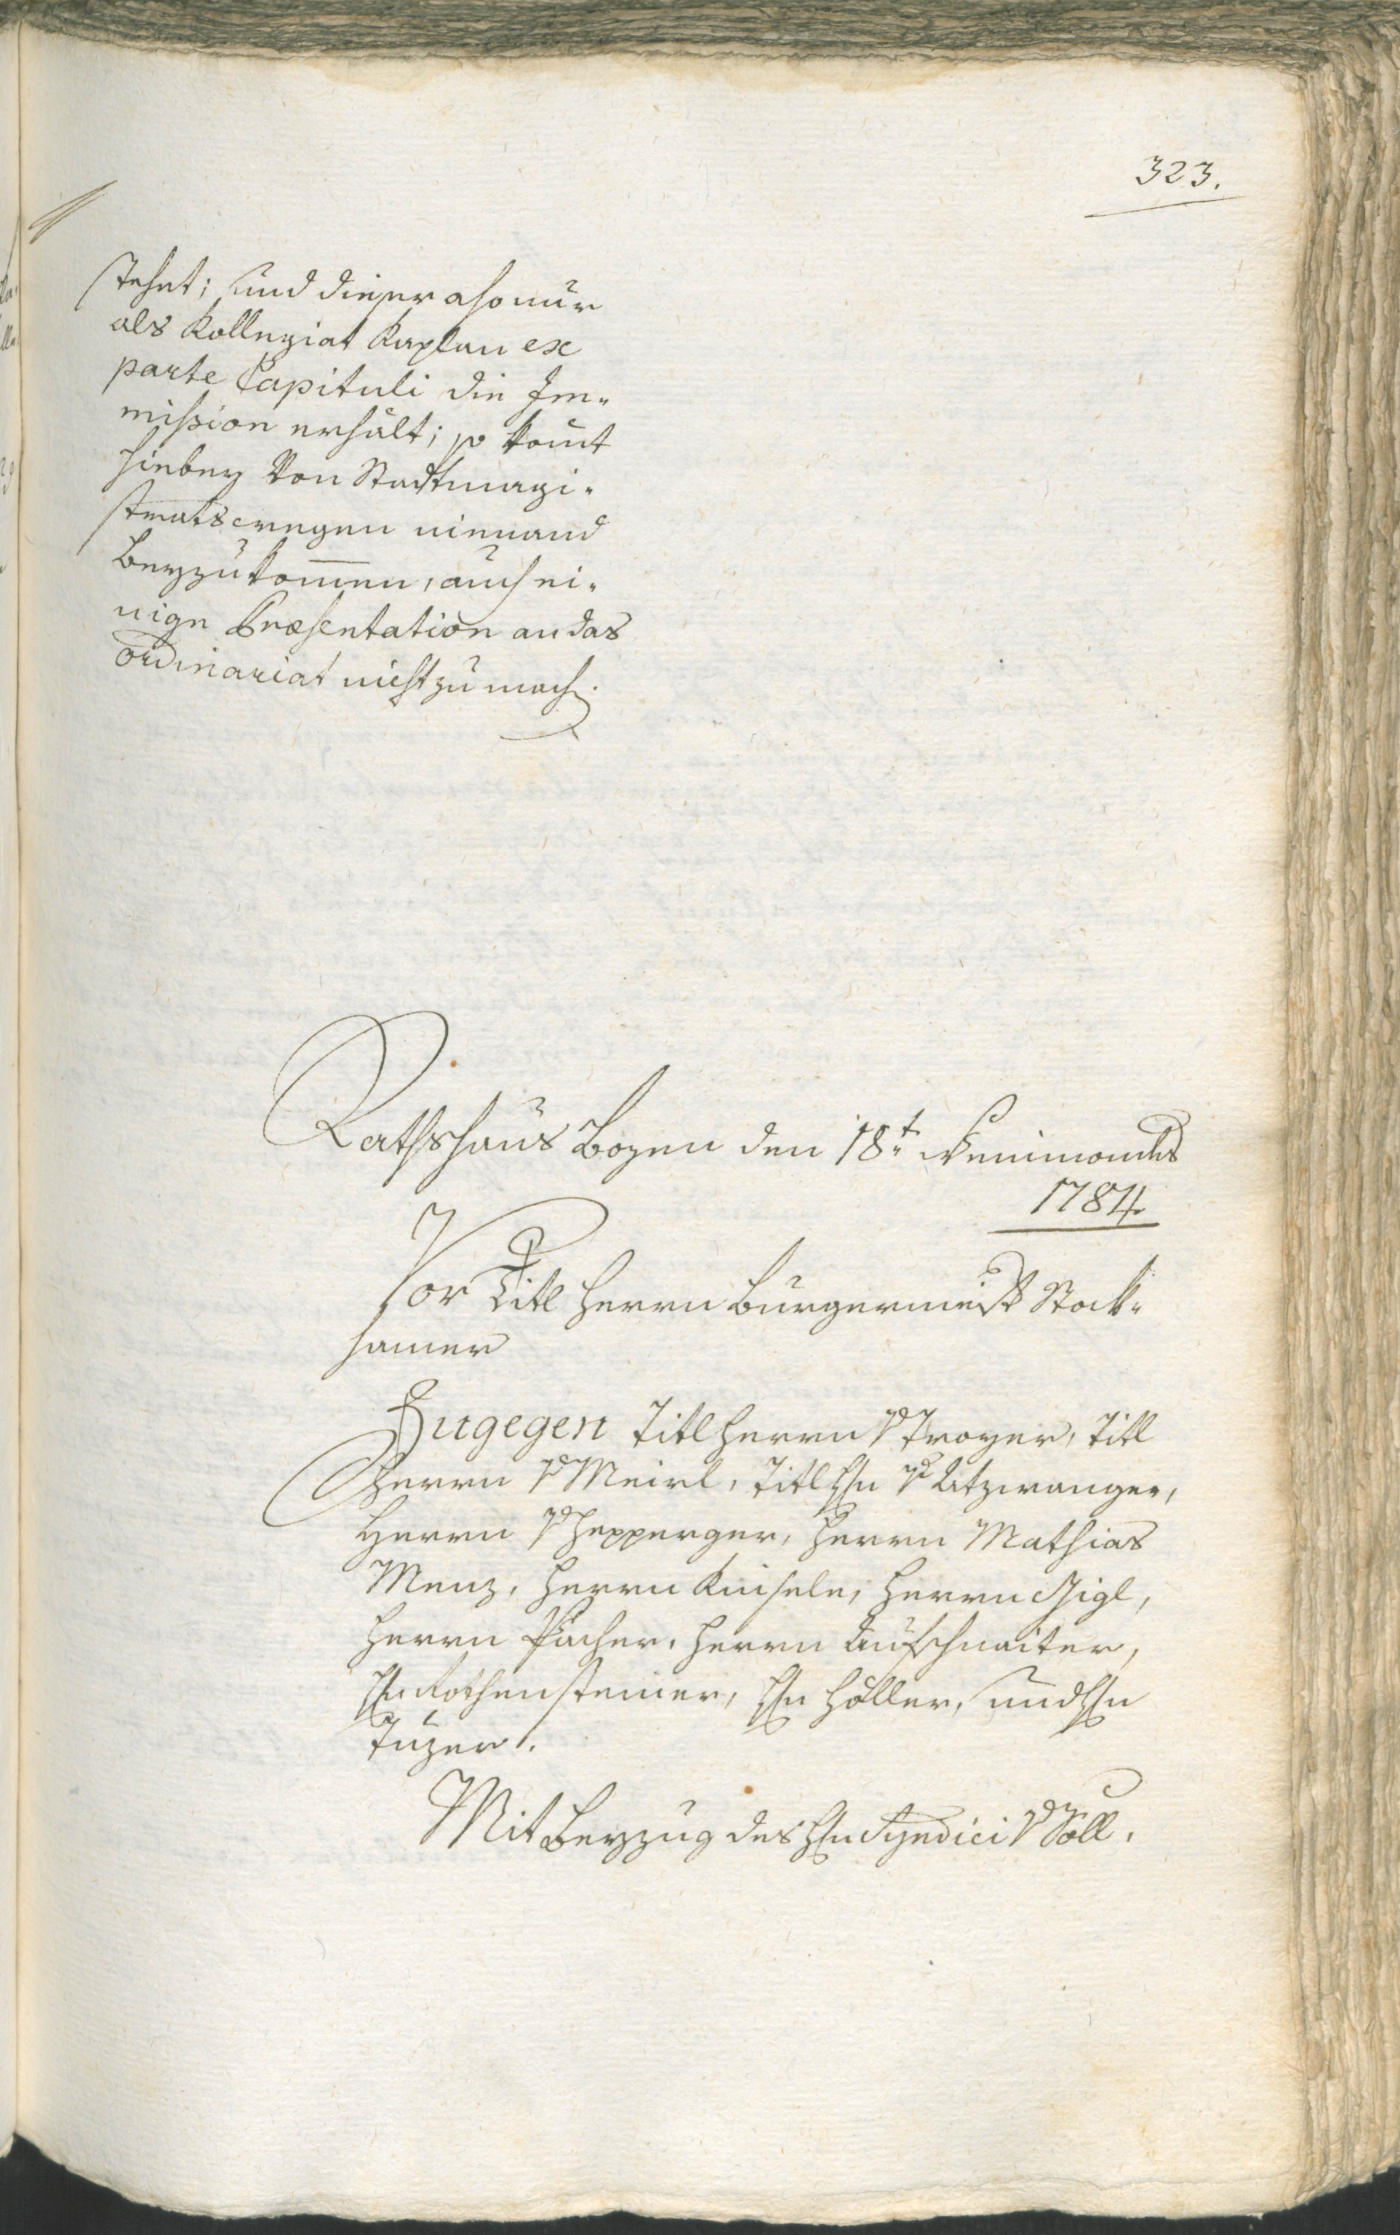 323.
stehet; und dieser also nur
als Kollegiat Kaplan ex
parte Capituli die Im-
mission erhält; so kom̅t
hiebey von Stadtmagi-
strats wegen niemand
beyzukom̅en, auch ei-
nige Præsentation an das
ordinariat nicht zu mach.
Rathshaus Bozen den 18.t Weinmonats
1784.
Vor Titl Herrn Burgermeist Stock-
hamer
Zugegen Titl Herrn v Troyer, Titl
Herrn v Meirl, Titl Hn v Atzwanger,
Herrn v Hepperger, Herrn Mathias
Menz, Herrn Kinsele, Herrn Gigl,
Herrn Pacher, Herrn Aufschnaiter,
Hn Rothensteiner, Hn Höller, und Hn
Tuzer.
Mit Beyzug des Hn Syndici v Söll.